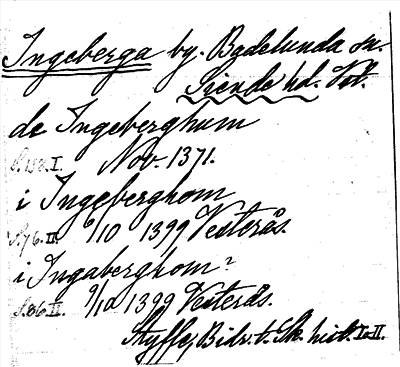 Ingeberga by. Badelunda sn.
Siende hd. Vstl.
de Ingeberghum
S. 138. I. Nov. 1371.
i Ingeberghom
S. 76. II. 6/10 1399 Vesterås.
i Ingaberghom?
S. 86 II. 9/10 1399 Vesterås.
Styffe, Bidr. t. Sk. hist. I-II.